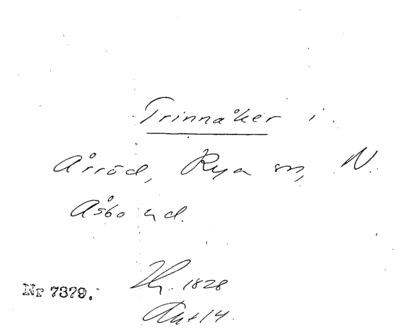 Trinnåker i.
Årröd, Rya sn, N.
Åsbo hd.
Nr 7379.
1828
Akt 14.